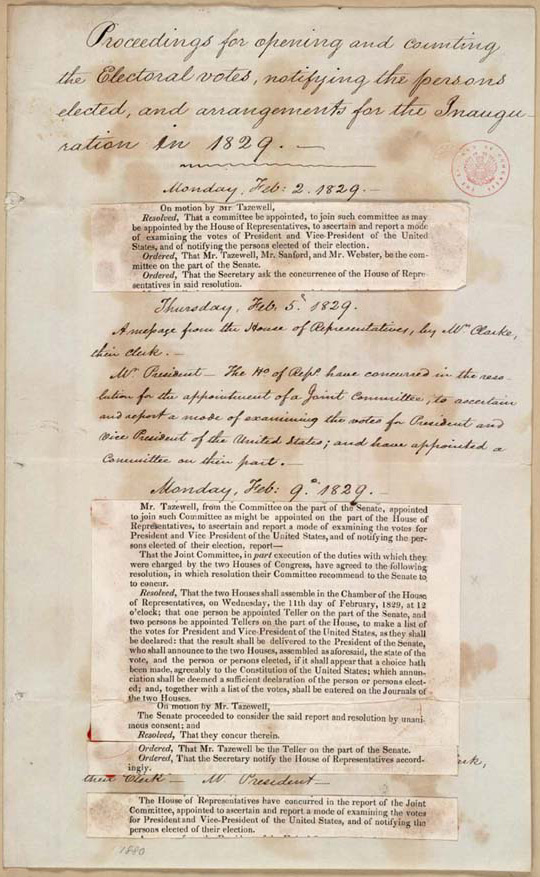 Proceedings for opening and counting
the Electoral votes, notifying the persons
elected, and arrangements for the Inaugu-
ration in 1829. —
Monday, Feb: 2. 1829. —
On motion by Mr Tazewell,
Resolved, That a committee be appointed, to join such committee as may
be appointed by the House of Representatives, to ascertain and report a mode
of examining the votes of President and Vice-President of the United
States, and of notifying the persons elected of their election.
Ordered, That Mr. Tazewell, Mr. Sanford, and Mr. Webster, be the com-
mittee on the part of the Senate.
Ordered, That the Secretary ask the concurrence of the House of Repre-
sentatives in said resolution.
Thursday, Feb. 5. 1829.
A message from the House of Representatives, by Mr Clarke,
their clerk. —
Mr. President — The Ho of Reps. have concurred in the reso-
lution for the appointment of a Joint Committee, to ascertain
and report a mode of examining the votes for President and
Vice President of the United States; and have appointed a
Committee on their part. —
Monday, Feb: 9. 1829. —
Mr. Tazewell, from the Committee on the part of the Senate, appointed
to join such Committee as might be appointed on the part of the House of
Representatives, to ascertain and report a mode of examining the votes for
President and Vice President of the United States, and of notifying the per-
sons elected of their election, report—
That the Joint Committee, in part execution of the duties with which they
were charged by the two Houses of Congress, have agreed to the following
resolution, in which resolution their Committee recommend to the Senate to
to concur.
Resolved, That the two Houses shall assemble in the Chamber of the House
of Representatives, on Wednesday, the 11th day of February, 1829, at 12
o'clock; that one person be appointed Teller on the part of the Senate, and
two persons be appointed Tellers on the part of the House, to make a list of
the votes for President and Vice-President of the United States, as they shall
be declared: that the result shall be delivered to the President of the Senate,
who shall announce to the two Houses, assembled as aforesaid, the state of the
vote, and the person or persons elected, if it shall appear that a choice hath
been made, agreeably to the Constitution of the United States; which annun-
ciation shall be deemed a sufficient declaration of the person or persons elect-
ed; and, together with a list of the votes, shall be entered on the Journals of
the two Houses.
On motion by Mr. Tazewell,
The Senate proceeded to consider the said report and resolution by unani-
mous consent; and
Resolved, That they concur therein.
Ordered, That Mr. Tazewell be the Teller on the part of the Senate.
Ordered, That the Secretary notify the House of Representatives accord-
ingly.
their Clerk — Mr. President —
The House of Representatives have concurred in the report of the Joint
Committee, appointed to ascertain and report a mode of examining the votes
for President and Vice-President of the United States, and of notifying the
persons elected of their election.
1880